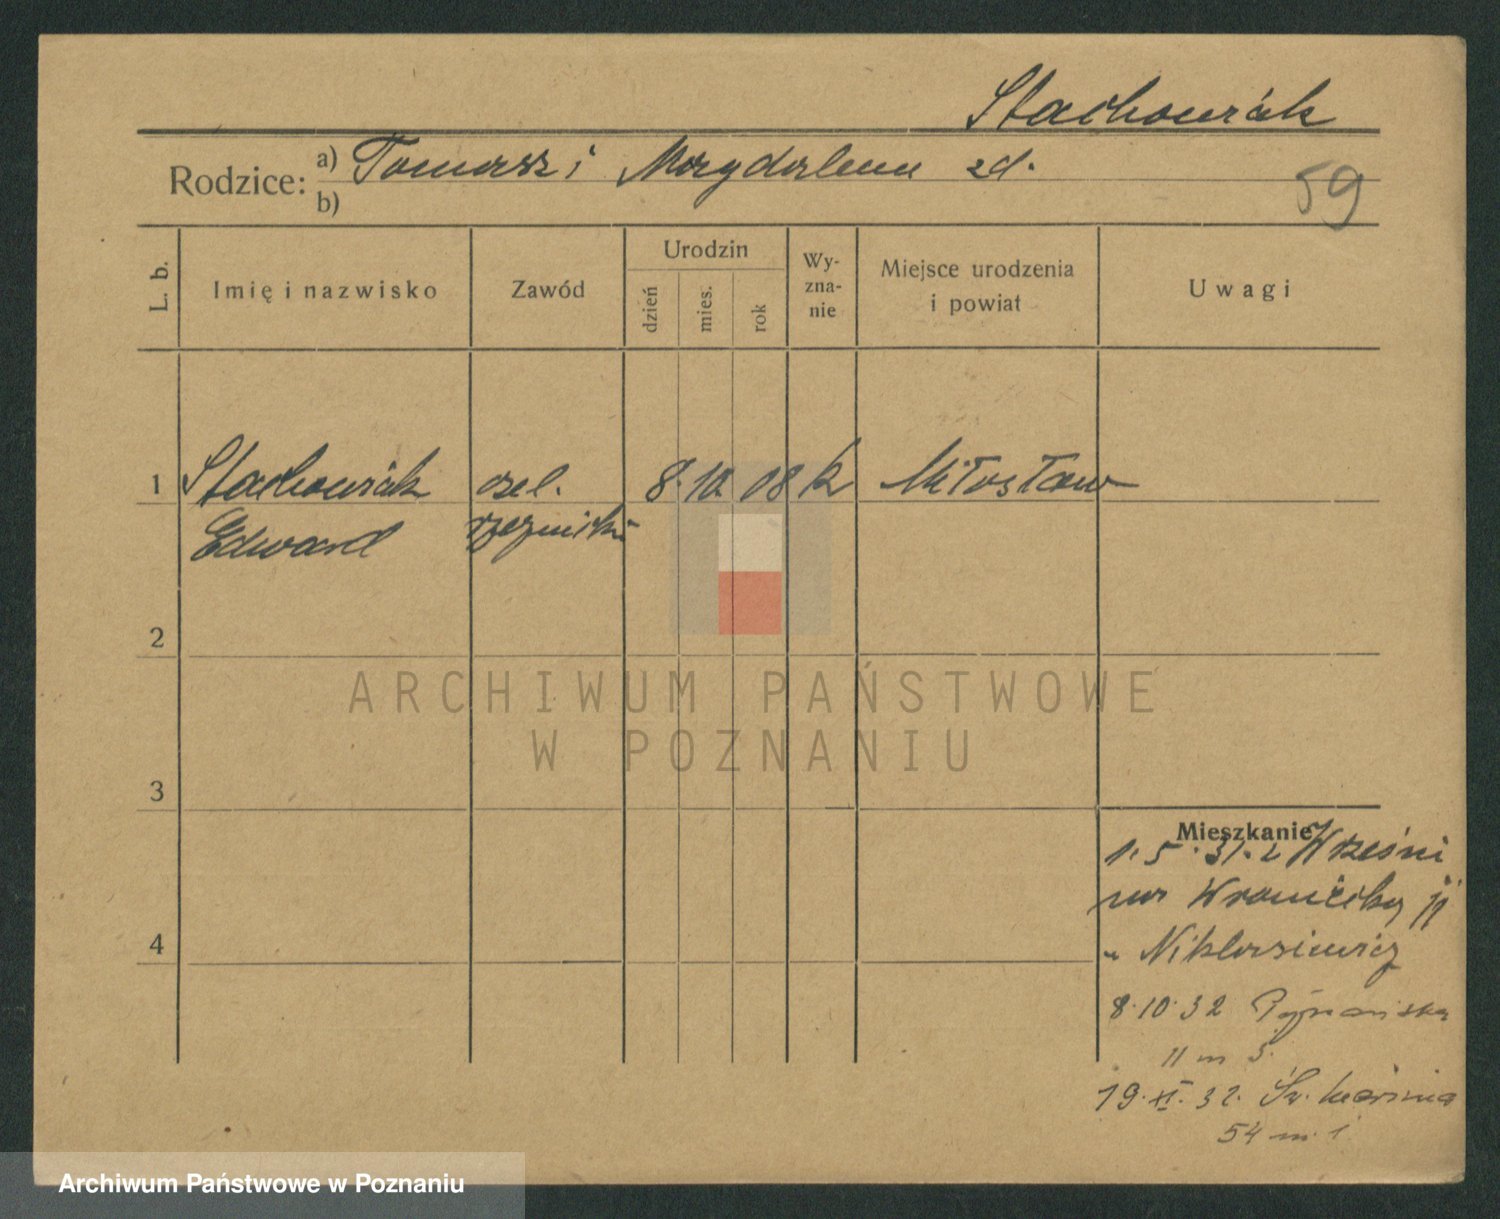 Stachowiak
Rodzice: a) Tomasz i Magdalena zd.
b)
59
L. b.
Imię i nazwisko
Zawód
Urodzin
dzień
mies.
rok
Wy-
zna-
nie
Miejsce urodzenia
i powiat
Uwagi
1 Stachowiak czel. 8. 10 08 k Miłosław
Edward rzeźnicki
2
3
4
Mieszkanie
1. 5. 31. z Wrześni
na Wroniecką 11
Niklasiewicz
8. 10. 32 Poznańska
11 m 3.
19. XI. 32. Św. Marcina
54 m. 1
ARCHIWUM PAŃSTWOWE
W POZNANIU
Archiwum Państwowe w Poznaniu